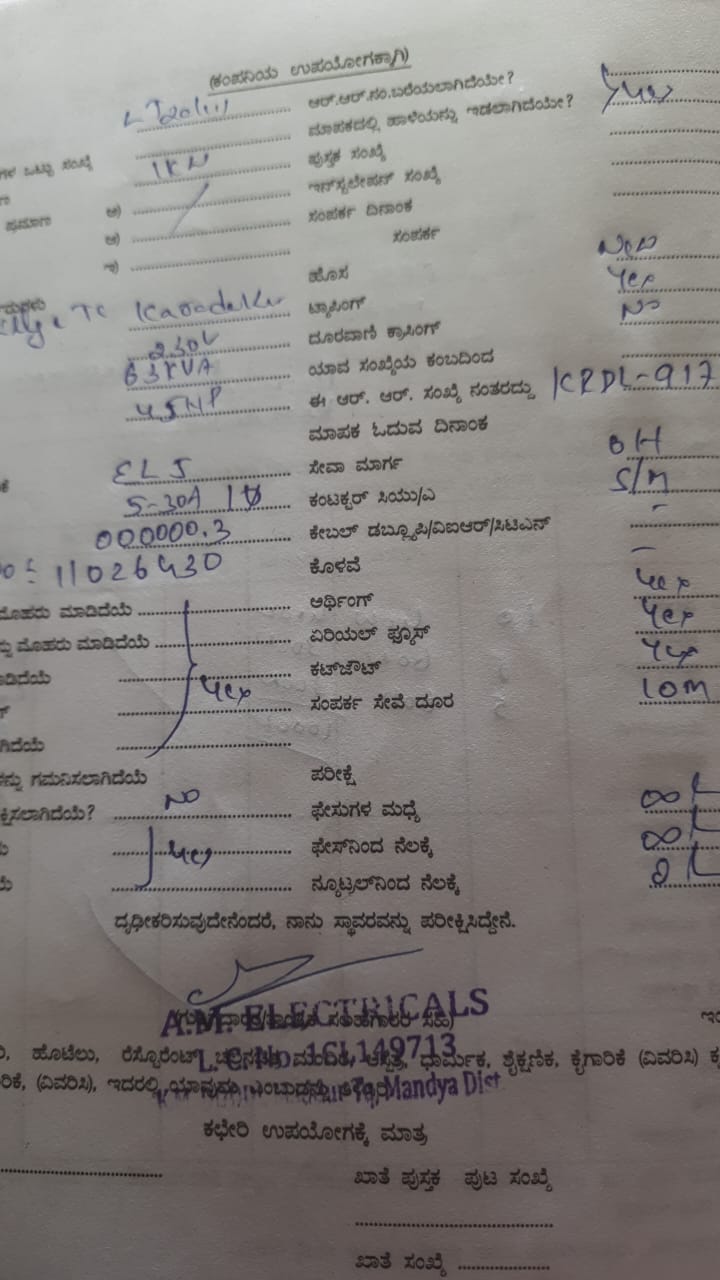 (ಕಂಪನಿಯ ಉಪಯೋಗಕ್ಕಾಗಿ)
ಆರ್.ಆರ್.ನಂ.ಬರೆಯಲಾಗಿದೆಯೇ? Yes
ಮಾಪಕದಲ್ಲಿ ಹಾಳೆಯನ್ನು ಇಡಲಾಗಿದೆಯೇ?
ಗಳ ಒಟ್ಟು ಸಂಖ್ಯೆ 1KW ಪುಸ್ತಕ ಸಂಖ್ಯೆ
ಪ್ರಮಾಣ ಅ) ಇನ್‌ಸ್ಟಲೇಷನ್ ಸಂಖ್ಯೆ
ಆ) ಸಂಪರ್ಕ ದಿನಾಂಕ
ಇ) ಸಂಪರ್ಕ
ಹೊಸ New
TC ಟ್ಯಾಪಿಂಗ್ Yes
230V ದೂರವಾಣಿ ಕ್ರಾಸಿಂಗ್ No
63KVA ಯಾವ ಸಂಖ್ಯೆಯ ಕಂಬದಿಂದ
45HP ಈ ಆರ್. ಆರ್. ಸಂಖ್ಯೆ ನಂತರದ್ದು KRDL-917
ಮಾಪಕ ಓದುವ ದಿನಾಂಕ
ELS ಸೇವಾ ಮಾರ್ಗ OH
5-30A ಕಂಟಕ್ಟರ್ ಸಿಯು/ಎ S/M
000000.3 ಕೇಬಲ್ ಡಬ್ಲ್ಯೂಪಿ/ವಿಐಆರ್/ಸಿಟಿಎನ್ -
11026430 ಕೊಳವೆ -
ಮೊಹರು ಮಾಡಿದೆಯೆ ಅರ್ಥಿಂಗ್ Yes
ನ್ನು ಮೊಹರು ಮಾಡಿದೆಯೆ ಏರಿಯಲ್ ಫ್ಯೂಸ್ Yes
ಮಾಡಿದೆಯೆ ಕಟ್‌ಜೌಟ್ Yes
Yes ಸಂಪರ್ಕ ಸೇವೆ ದೂರ 10M
ಗಿದೆಯೆ
ಗಮನಿಸಲಾಗಿದೆಯೆ ಪರೀಕ್ಷೆ
ಕ್ಷಿಸಲಾಗಿದೆಯೆ? NO ಫೇಸುಗಳ ಮಧ್ಯೆ ∞
Yes ಫೇಸ್‌ನಿಂದ ನೆಲಕ್ಕೆ ∞
ನ್ಯೂಟ್ರಲ್‌ನಿಂದ ನೆಲಕ್ಕೆ
ದೃಢೀಕರಿಸುವುದೇನೆಂದರೆ, ನಾನು ಸ್ಥಾವರವನ್ನು ಪರೀಕ್ಷಿಸಿದ್ದೇನೆ.
A.M. ELECTRICALS
L.C. No. 1CL149713
ಹೊಟೆಲು, ರೆಸ್ಟೊರೆಂಟ್ ಧಾರ್ಮಿಕ, ಶೈಕ್ಷಣಿಕ, ಕೈಗಾರಿಕೆ (ವಿವರಿಸಿ)
ರಿಕೆ, (ವಿವರಿಸಿ), ಇದರಲ್ಲಿ Mandya Dist
ಕಛೇರಿ ಉಪಯೋಗಕ್ಕೆ ಮಾತ್ರ
ಖಾತೆ ಪುಸ್ತಕ ಪುಟ ಸಂಖ್ಯೆ
ಖಾತೆ ಸಂಖ್ಯೆ